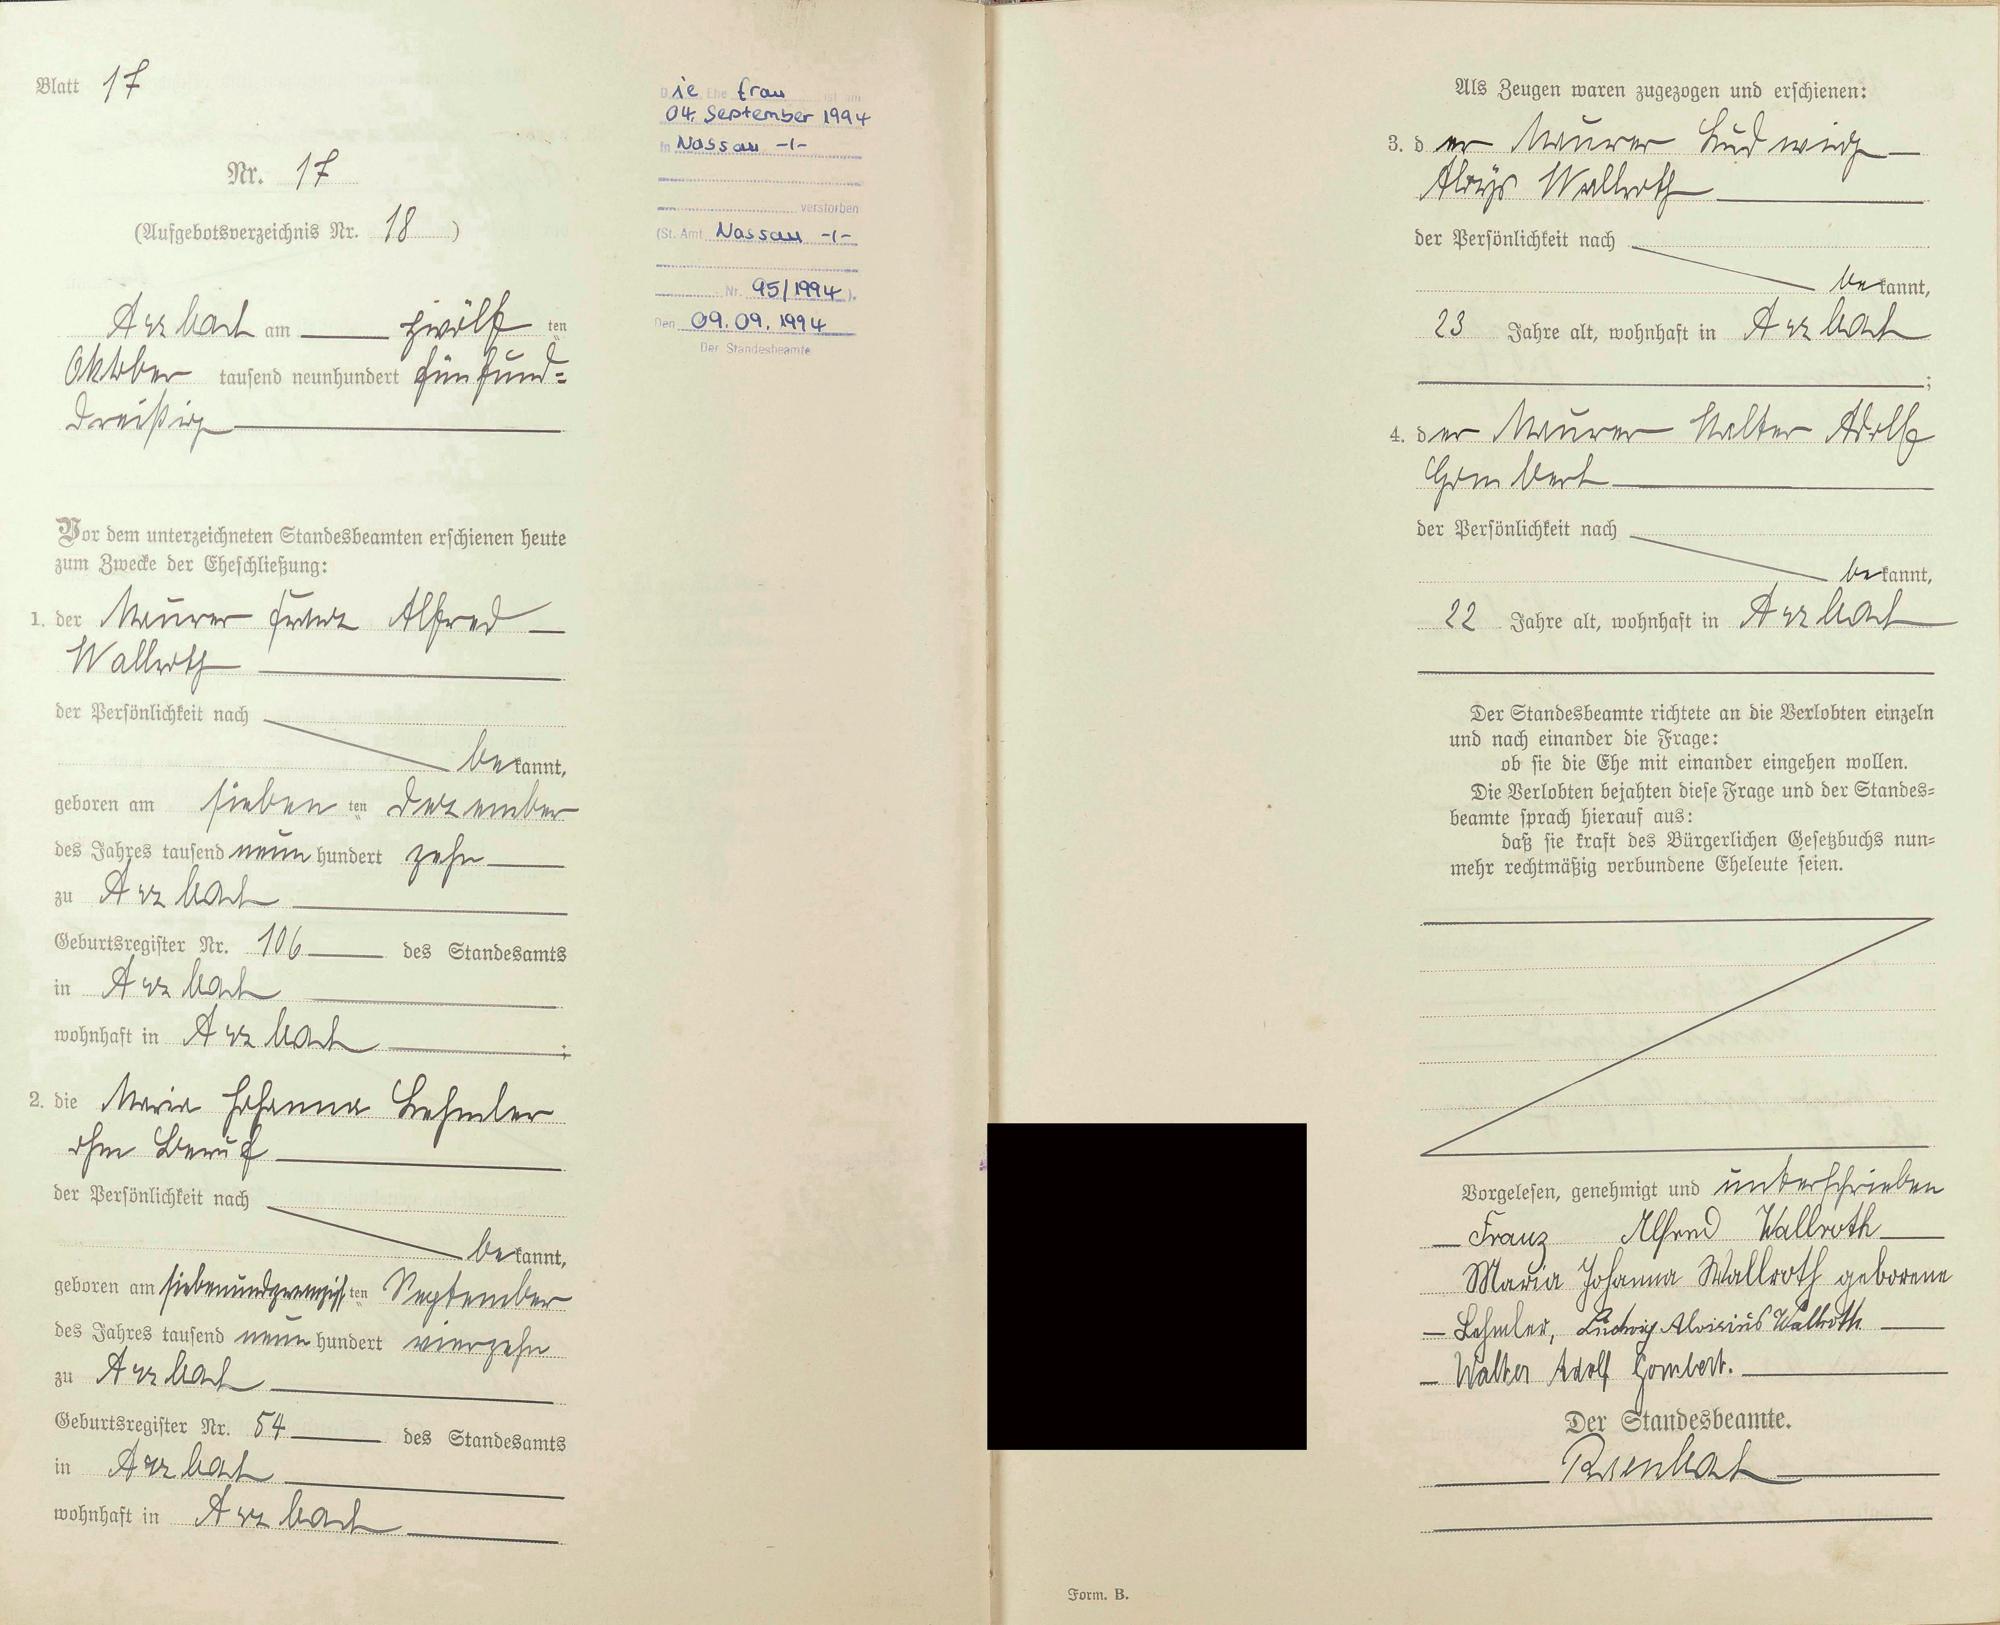 Blatt 17
Nr. 17
(Aufgebotsverzeichnis Nr. 18 )
Arzbach am zwölf ten
Oktober tausend neunhundert fünfund=
dreißig
Vor dem unterzeichneten Standesbeamten erschienen heute
zum Zwecke der Eheschließung:
1. der Maurer Franz Alfred
Wallroth
der Persönlichkeit nach
bekannt,
geboren am sieben ten Dezember
des Jahres tausend neun hundert zehn
zu Arzbach
Geburtsregister Nr. 106 des Standesamts
in Arzbach
wohnhaft in Arzbach ;
2. die Maria Johanna Lehmler
ohne Beruf
der Persönlichkeit nach
bekannt,
geboren am siebenundzwanzigs ten September
des Jahres tausend neun hundert vierzehn
zu Arzbach
Geburtsregister Nr. 54 des Standesamts
in Arzbach
wohnhaft in Arzbach
Die Ehefrau ist am
04. September 1994
in Nassau -/-
verstorben
(St. Amt Nassau -/-
Nr. 95/1994 ).
Den 09.09.1994
Der Standesbeamte
Als Zeugen waren zugezogen und erschienen:
3. der Maurer Ludwig
Aloys Wallroth
der Persönlichkeit nach
bekannt,
23 Jahre alt, wohnhaft in Arzbach
;
4. der Maurer Walter Adolf
Gombert
der Persönlichkeit nach
bekannt,
22 Jahre alt, wohnhaft in Arzbach
Der Standesbeamte richtete an die Verlobten einzeln
und nach einander die Frage:
ob sie die Ehe mit einander eingehen wollen.
Die Verlobten bejahten diese Frage und der Standes=
beamte sprach hierauf aus:
daß sie kraft des Bürgerlichen Gesetzbuchs nun=
mehr rechtmäßig verbundene Eheleute seien.
Vorgelesen, genehmigt und unterschrieben
Franz Alfred Wallroth
Maria Johanna Wallroth geborene
Lehmler, Ludwig Aloisius Wallroth
Walter Adolf Gombert.
Der Standesbeamte.
Form. B.